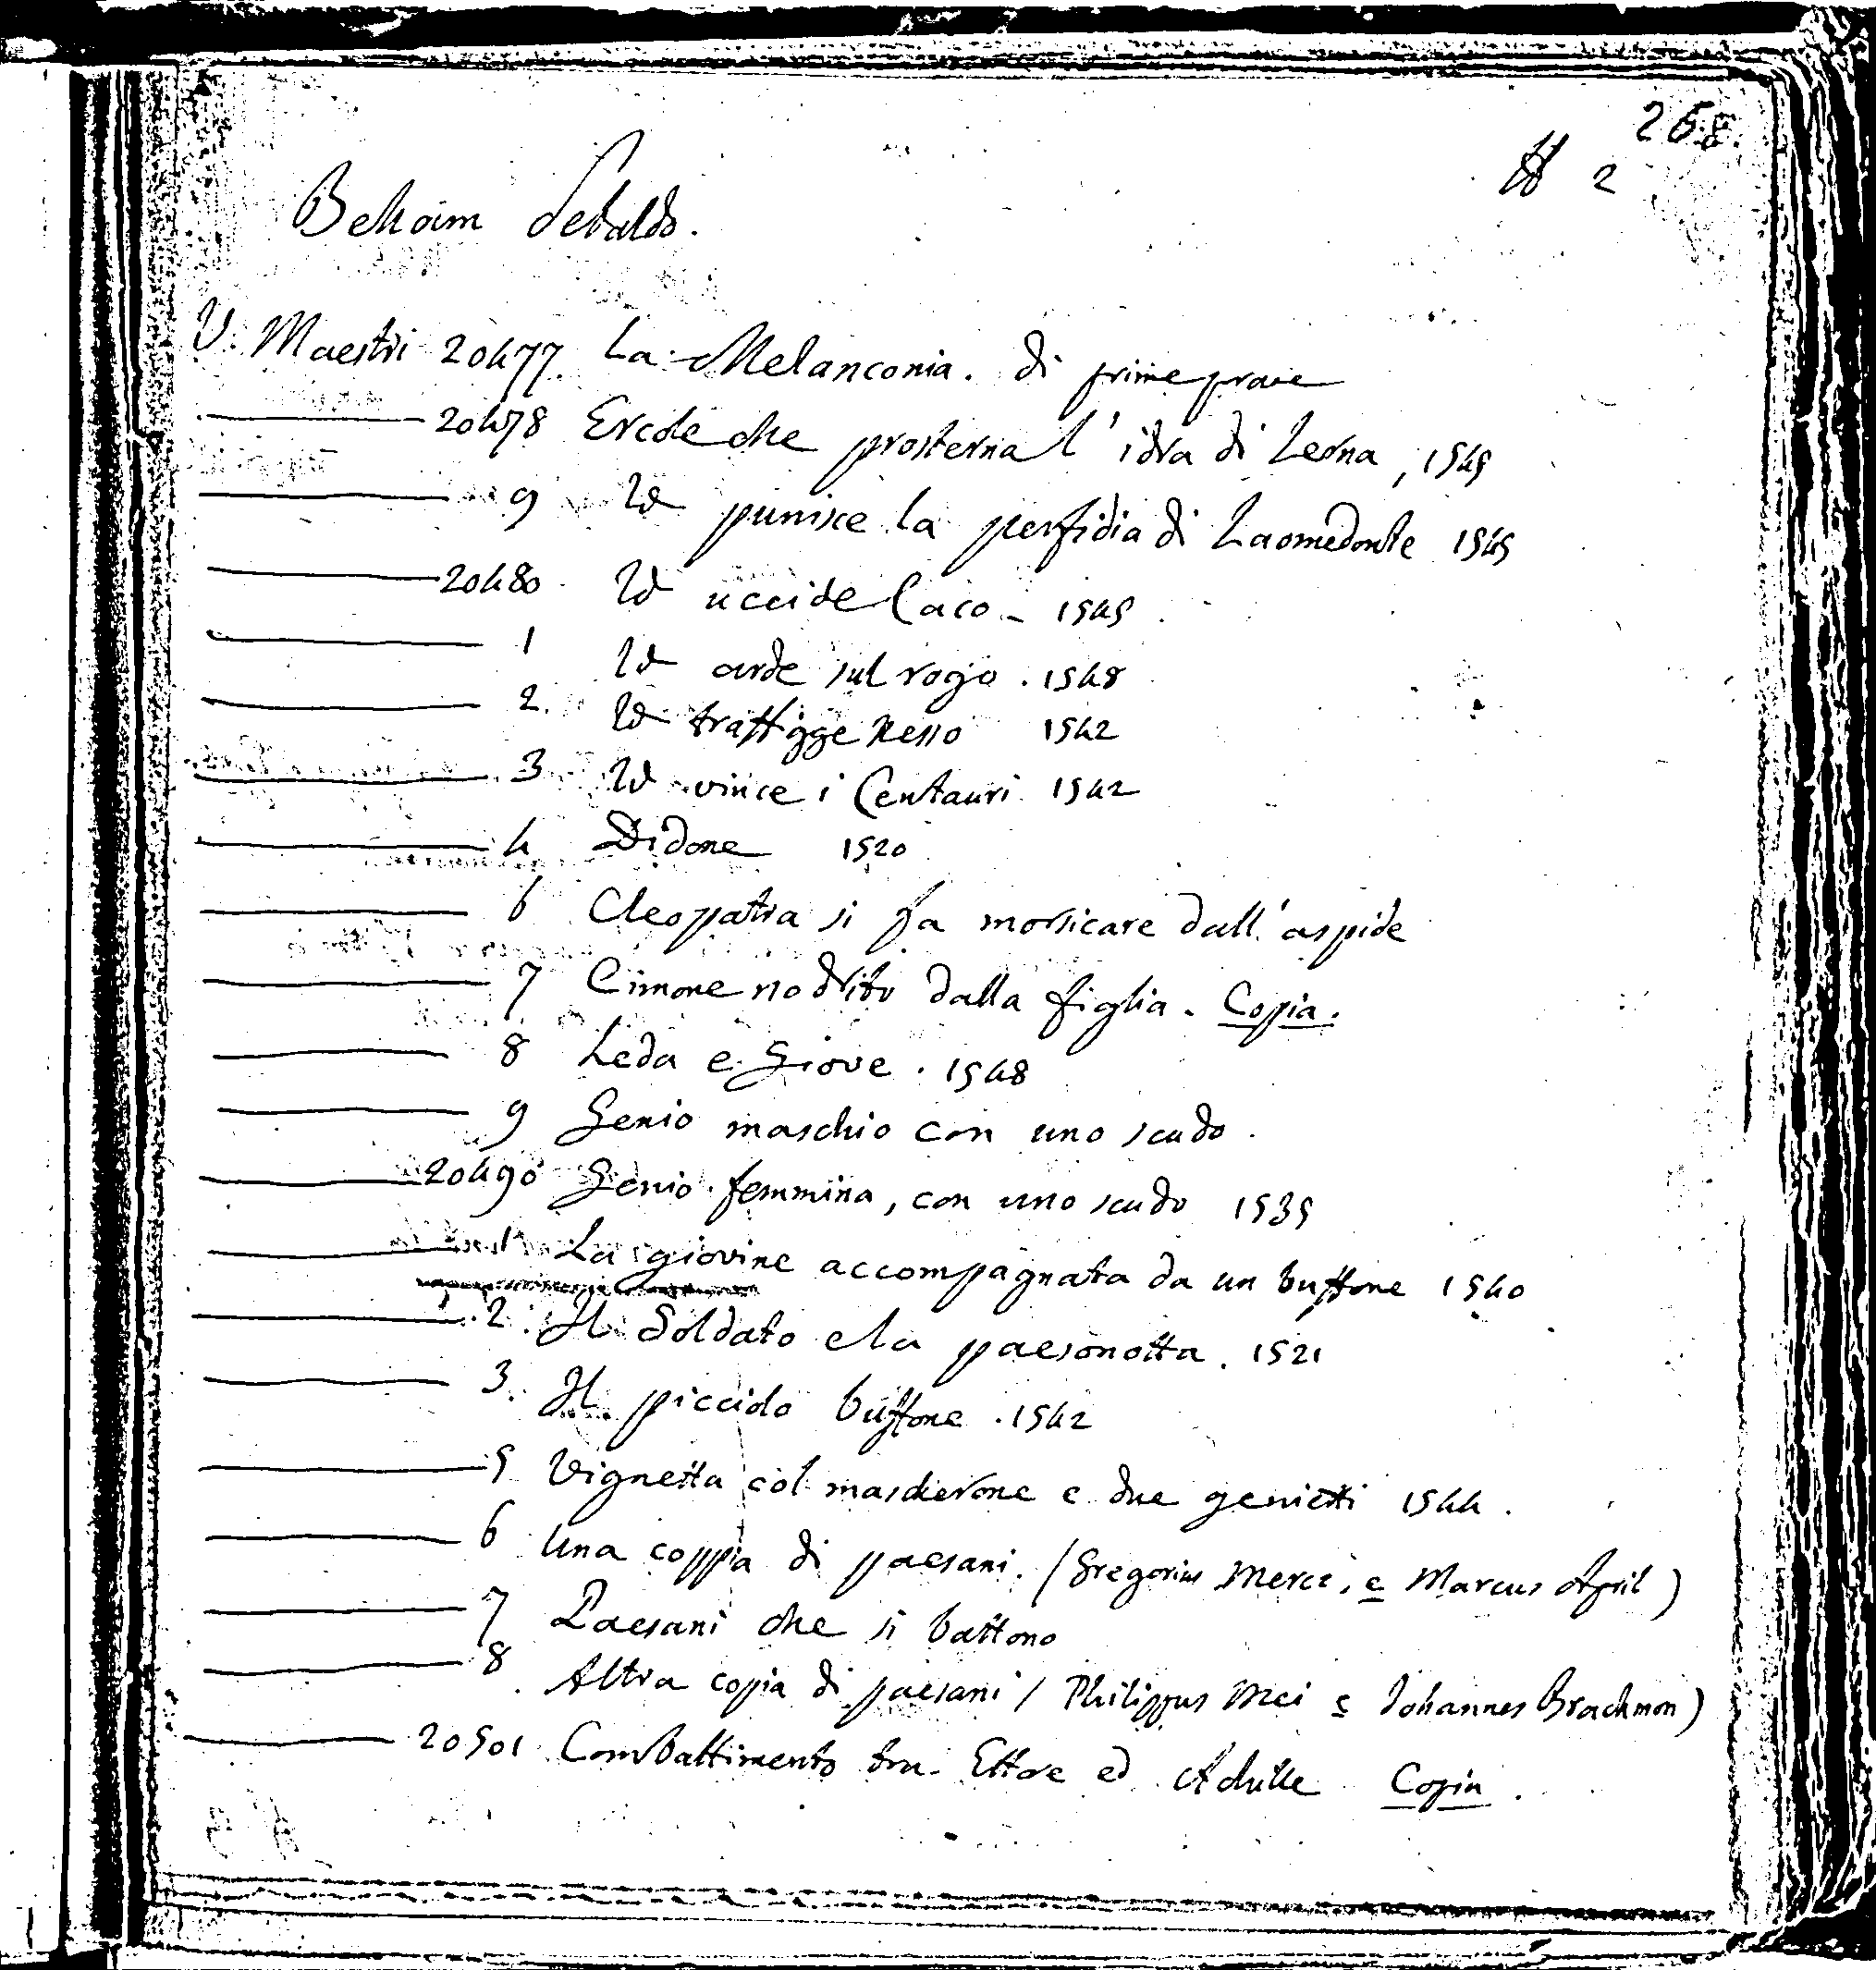 2
Behaim Sebaldo.
V. Maestri 20477. La Melanconia. di prime prove
20478 Ercole che prosterna l'idra di Lerna, 1545
9 Id punisce la perfidia di Laomedonte 1545
20480 Id uccide Caco - 1545
1 Id arde sul rogo. 1548
2. Id traffigge Nesso 1542
3 Id vince i Centauri 1542
4 Didone 1520
6 Cleopatra si fa morsicare dall'aspide
7 Cimone nodrito dalla figlia. Copia.
8 Leda e Giove. 1548
9 Genio maschio con uno scudo.
20490 Genio femmina, con uno scudo 1535
1 La giovine accompagnata da un buffone 1540
2. Il Soldato e la paesanotta. 1521
3. Il piccolo buffone. 1542
5 Vignetta col mascherone e due genietti 1544.
6 Una coppia di paesani. (Gregorius Merci, e Marcus April)
7 Paesani che si battono
8 Altra copia di paesani (Philippus Mei e Johannes Brachmon)
20501 Combattimento tra Ettore ed Achille Copia.